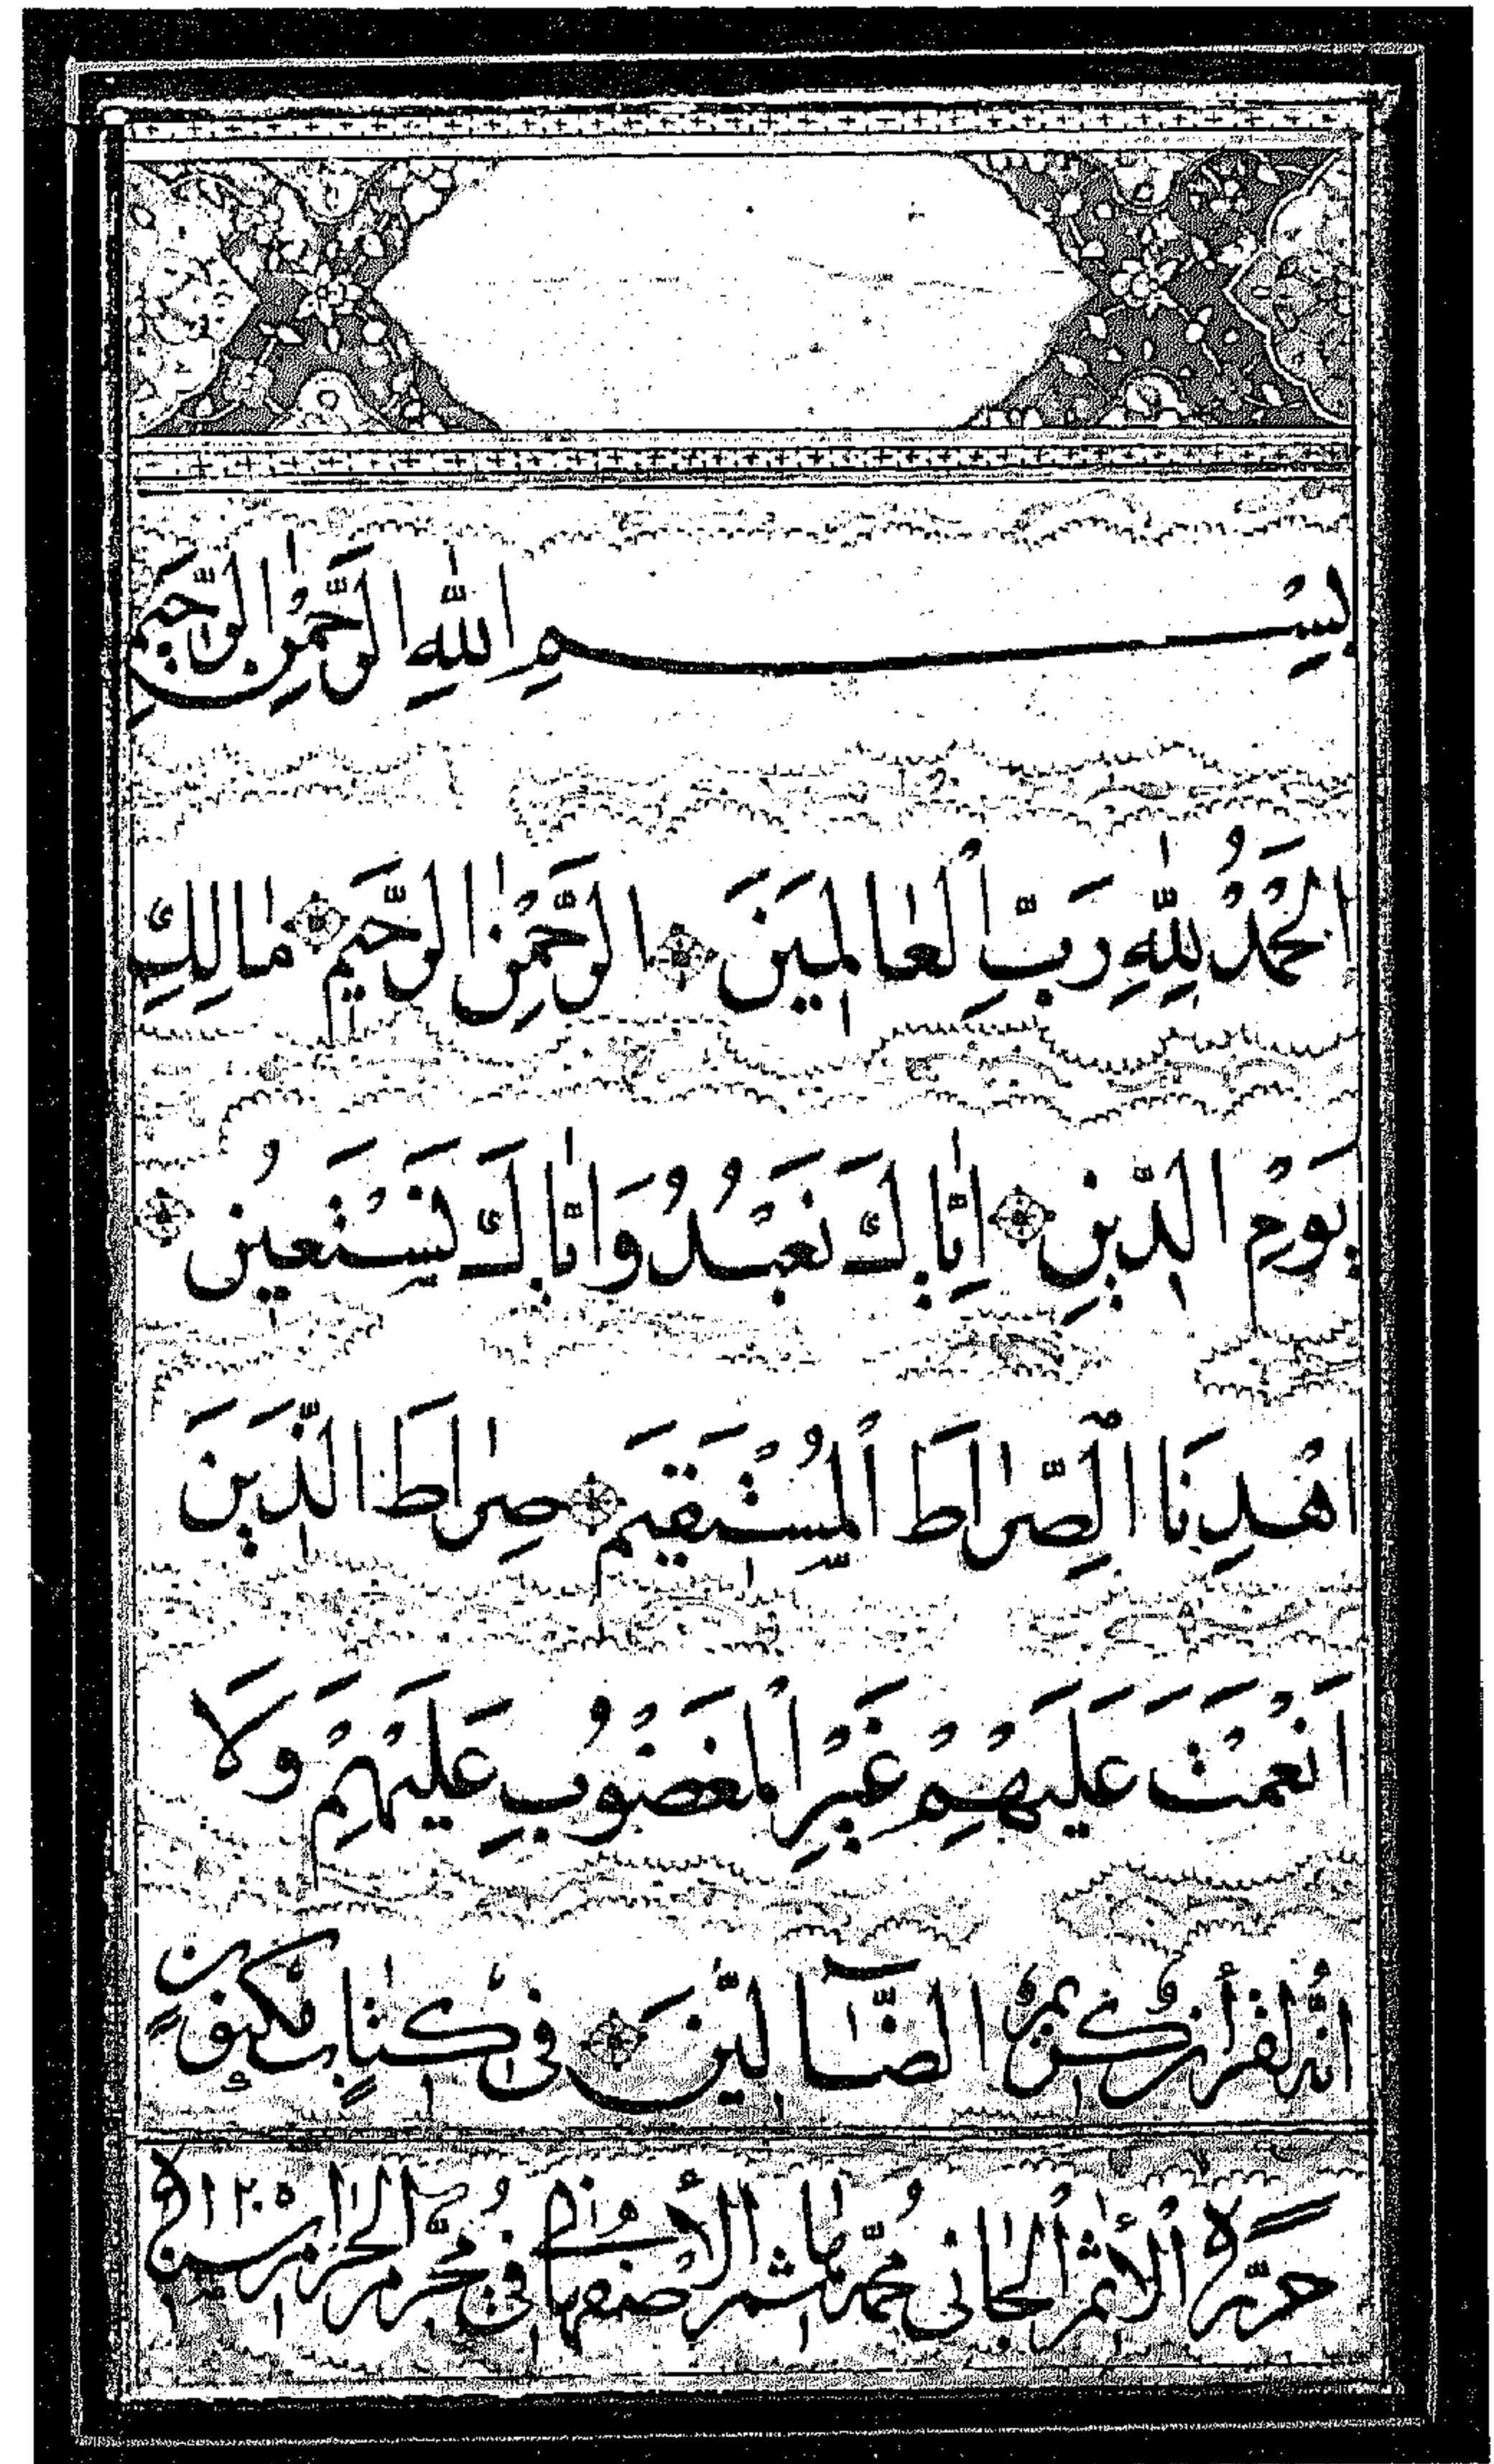 بِسْمِ اللّٰهِ الرَّحْمٰنِ الرَّحِیمِ
اَلْحَمْدُ لِلّٰهِ رَبِّ الْعٰالَمِینَ الرَّحْمٰنِ الرَّحِیمِ مٰالِكِ
یَوْمِ الدِّینِ اِیّٰاكَ نَعْبُدُ وَاِیّٰاكَ نَسْتَعِینُ
اِهْدِنَا الصِّرٰاطَ الْمُسْتَقِیمَ صِرٰاطَ الَّذِینَ
اَنْعَمْتَ عَلَیْهِمْ غَیْرِ الْمَغْضُوبِ عَلَیْهِمْ وَلَا
انه لقرآن كریم الضَّآلِّینَ فی كتابٍ مكنونٍ
حرّره الأثم الجانی محمّد هاشم الأصفهانی فی محرم الحرام سنه ۱۲۰۵